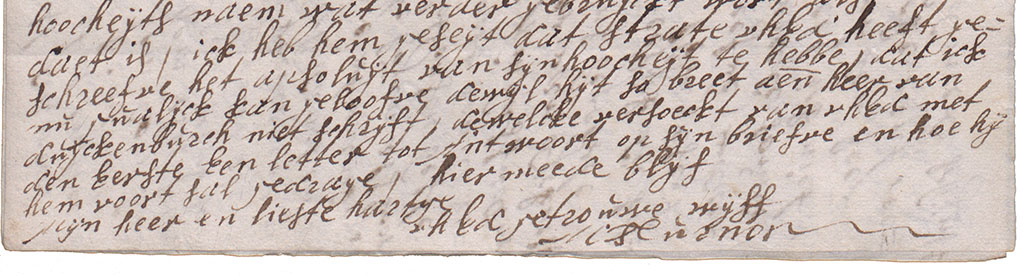 hoocheÿts naem wat verder gebruijckt wort als
daet is, ick heb hem geseÿt dat strate vhEd heeft ge=
schreefve het apsoluÿt van sÿn hoocheÿt te hebbe, dat ick
nu qualÿck kan geloofve dewÿl hÿt so breet aen heer van
duÿckenburch niet schrÿft, dewelcke versoeckt van vhEd met
den eerste een letter tot Antwoort op sÿn briefve en hoe hÿ
hem voort sal gedrage, hier meede blÿf
mÿn heer en liefste hartge
vhEd getrouwe wÿff